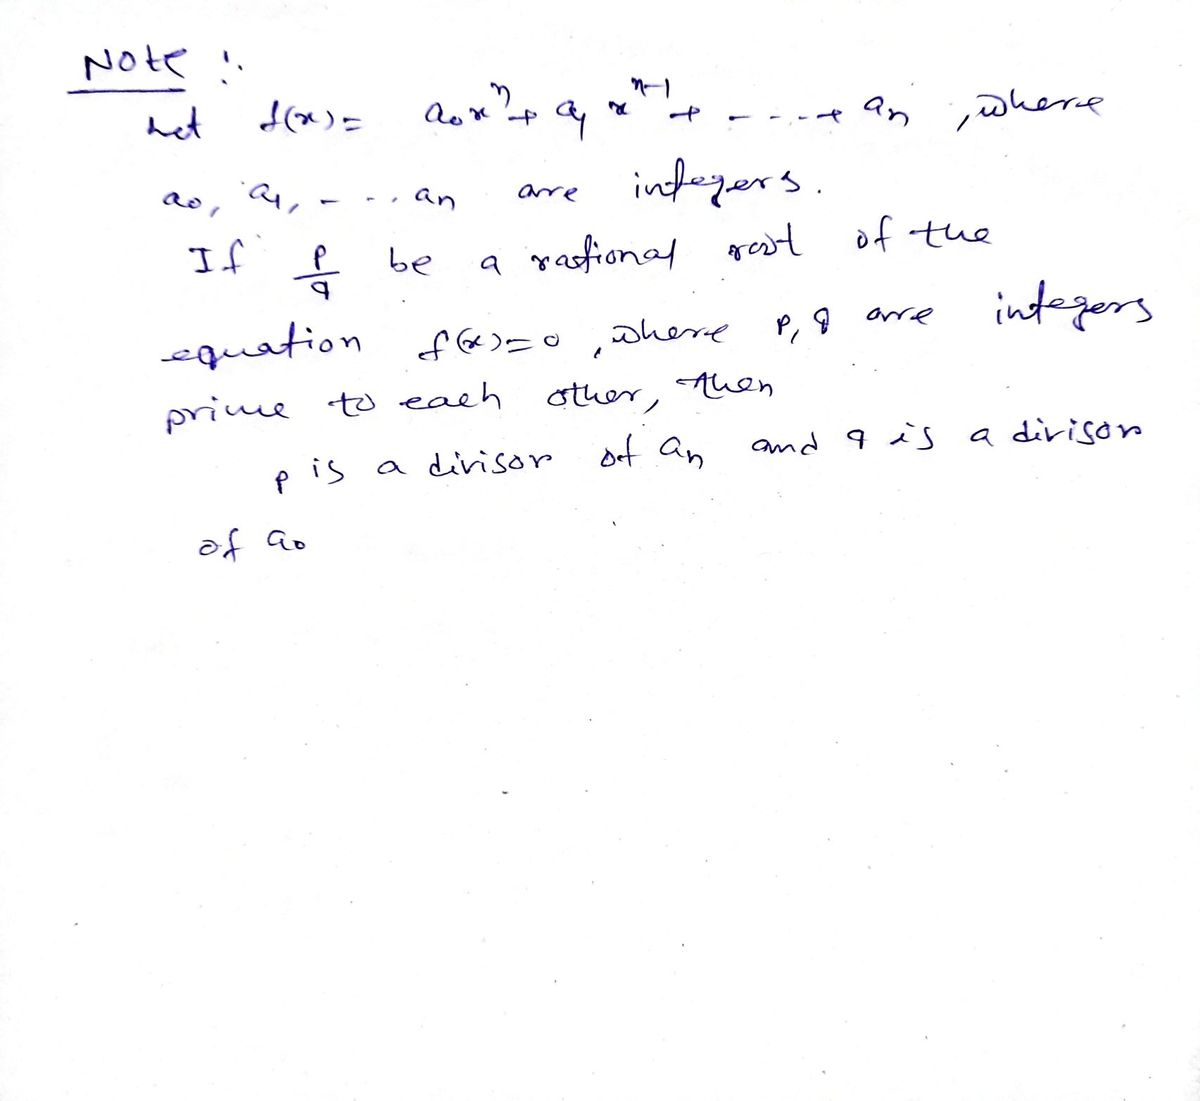 Note :.
Let f(x) = a₀xⁿ + a₁xⁿ⁻¹ + ----- + aₙ , where
a₀, a₁, - - .. aₙ are integers.
If p/q be a rational root of the
equation f(x)=0 , where p, q are integers
prime to each other, then
p is a divisor of aₙ and q is a divisor
of a₀